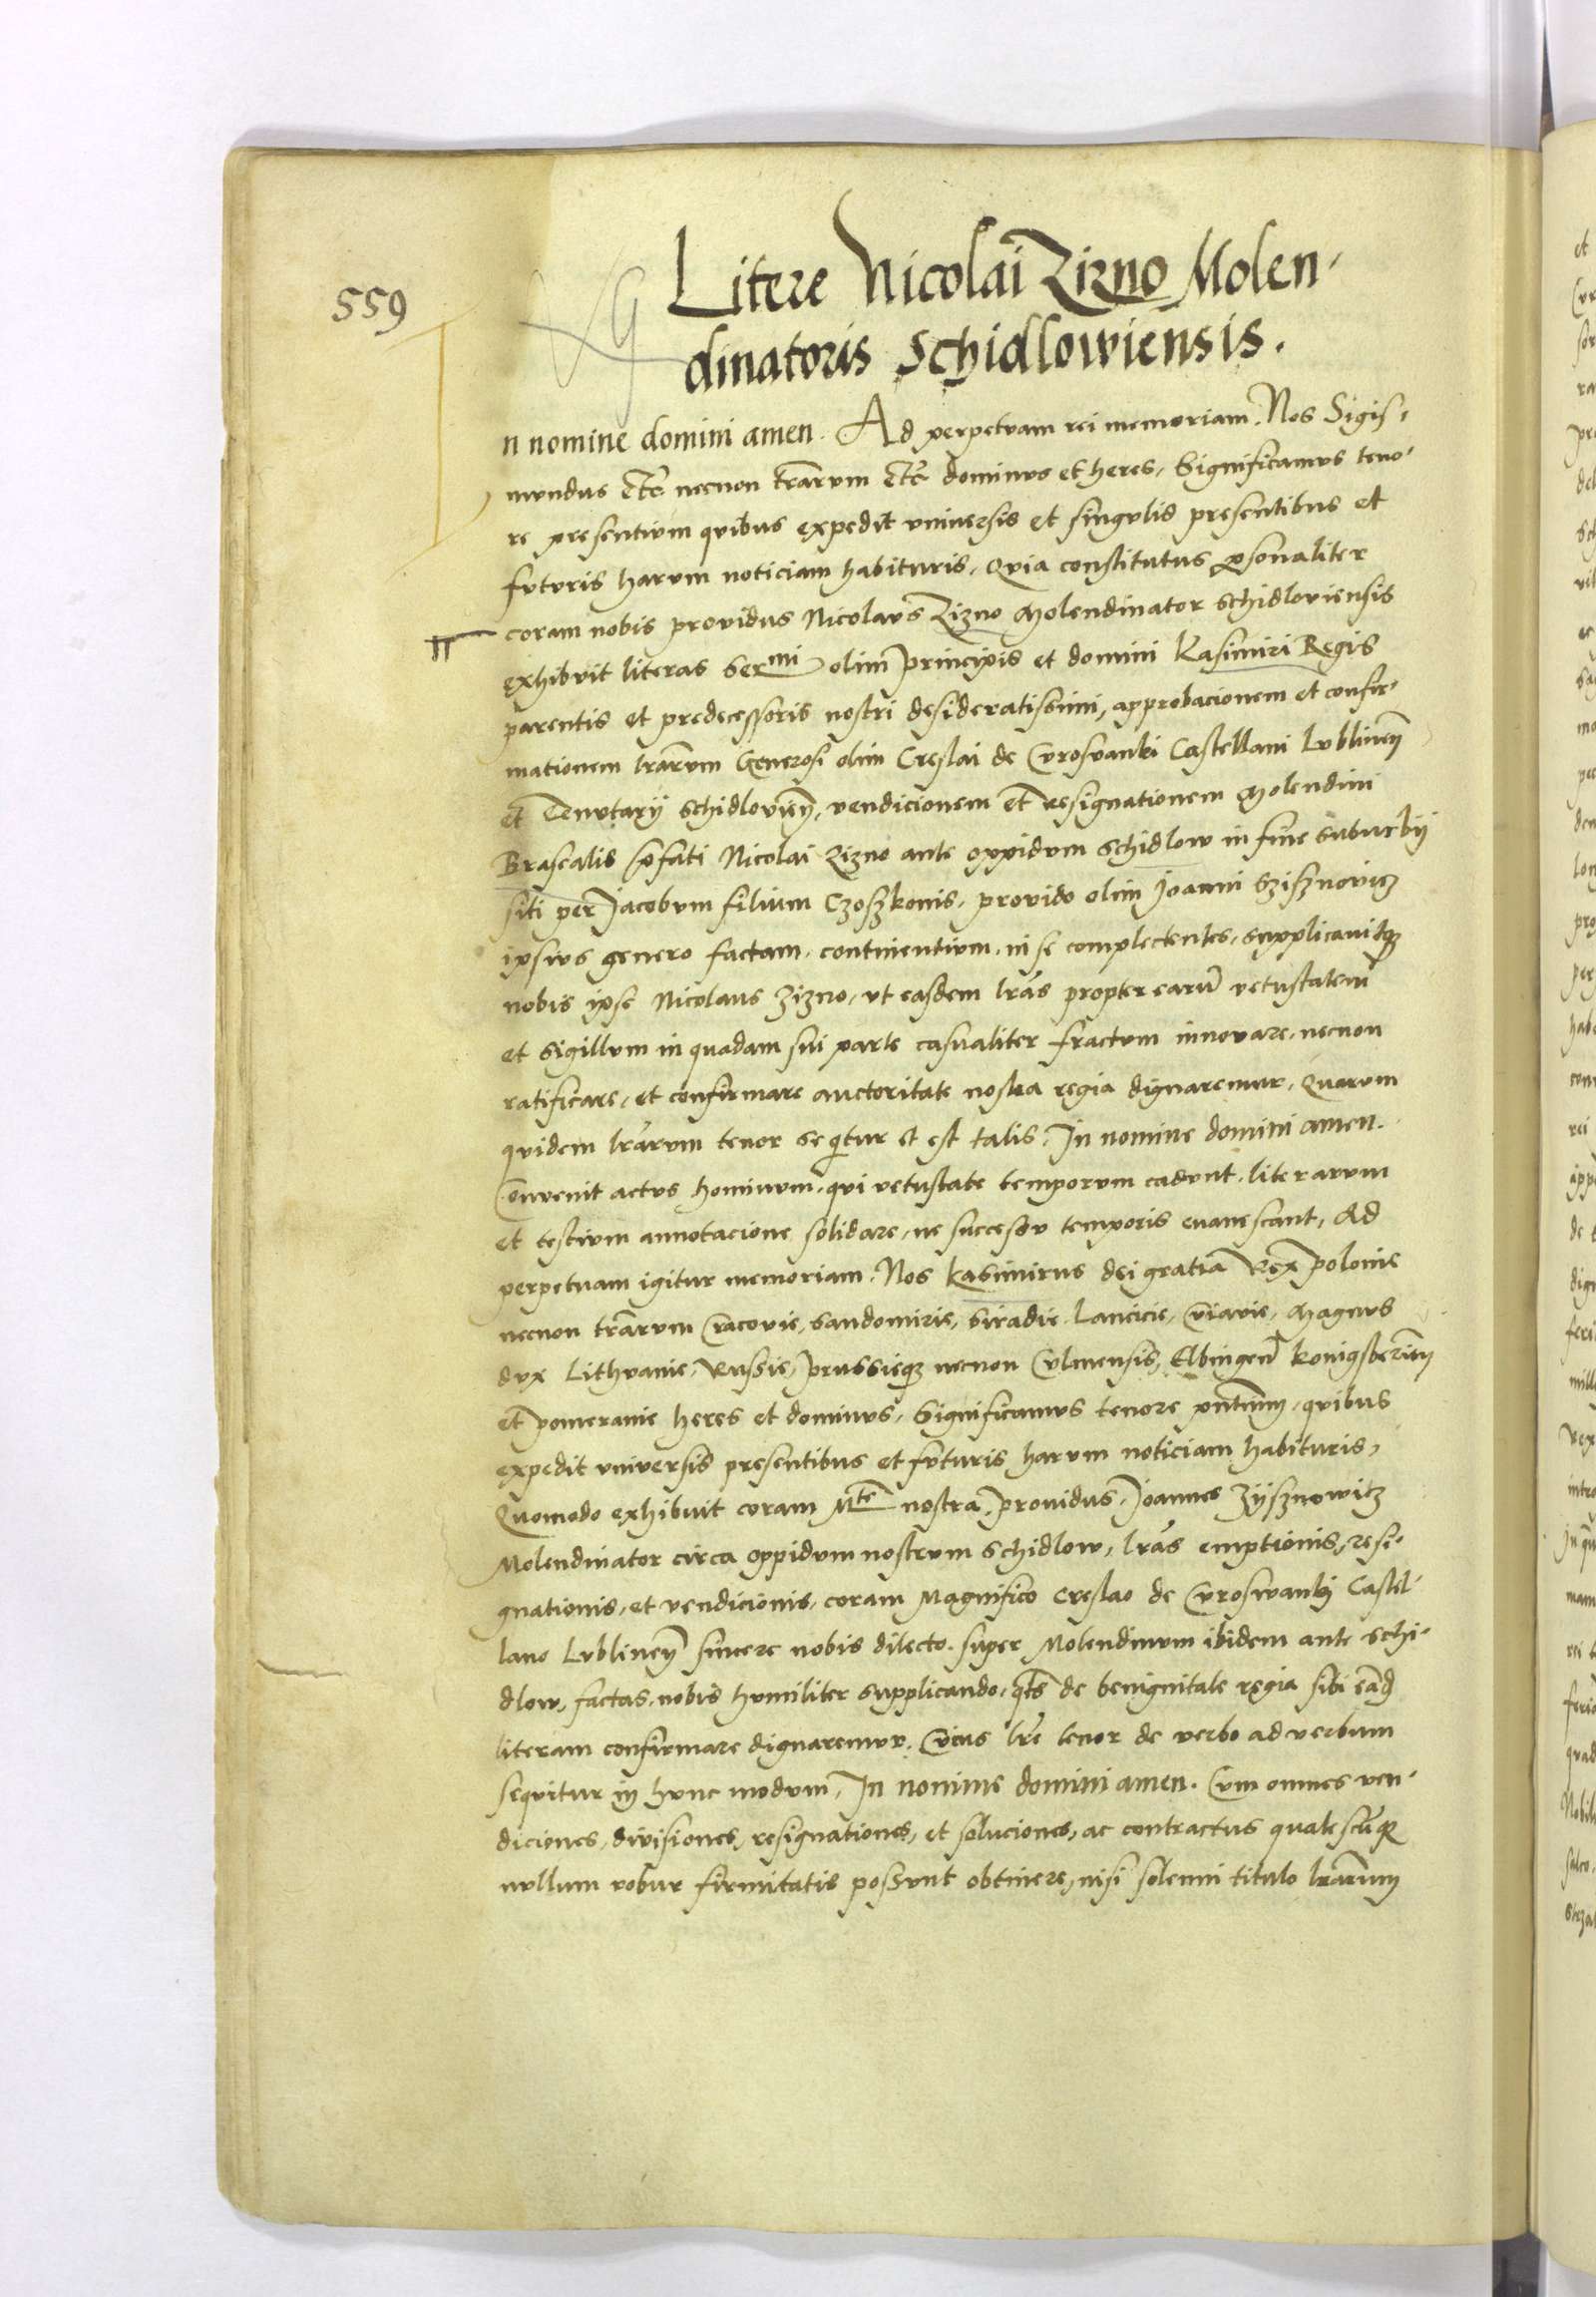 559
Litere Nicolai Zizno Molen-
dinatoris Schidlowiensis.
In nomine domini amen. Ad perpetuam rei memoriam. Nos Sigis-
mundus etc̄ necnon tr̄arvm etc̄ dominvs et heres, Significamvs teno-
re presentivm qvibus expedit vniversis et singvlis presentibus et
fvtvris harvm noticiam habitvris, Qvia constitutus ꝑsonaliter
coram nobis providus Nicolavs Zizno Molendinator Schidloviensis
exhibvit literas Ser^mi olim principis et domini Kasimiri Regis
parentis et predecessoris nostri desideratissimi, approbacionem et confir-
mationem lr̄arvm Generosi olim Creslai de Cvrosvanki Castellani Lvblineñ
et Tenvtarij Schidlovieñ, vendicionem et resignationem Molendini
Brasealis p̄fati Nicolai Zizno ante oppidvm Schidlow in fine subvrbij
siti per Jacobvm filivm Czoszkonis, provido olim Joanni Szisznovicz
ipsivs genero factam, continentivm, in se complectentes, supplicavitqꝫ
nobis ipse Nicolaus Zizno, vt easdem lr̄as propter earū vetustatem
et sigillvm in quadam sui parte casvaliter fractvm innovare, necnon
ratificare, et confirmare avctoritate nostra regia dignaremur, Quarvm
qvidem lr̄arvm tenor seqitur et est talis. In nomine domini amen.
Convenit actvs hominvm, qvi vetustate temporvm cadvnt, literarvm
et testivm annotacione solidare, ne successv temporis evanescant, Ad
perpetvam igitur memoriam. Nos Kasimirus dei gratia Rex polonie
necnon tr̄arvm Cracovie, Sandomirie, Siradie Lancicie, Cviavie, Magnvs
dvx Lithvanie, Rvssie, prussieqꝫ necnon Cvlmensis, Elbingeñ Konigsberieñ
et pomeranie heres et dominvs, Significamvs tenore pn̄tivm, qvibus
expedit vniversis presentibus et fvtvris harvm noticiam habitvris,
Qvomodo exhibuit coram M^te nostra, providus Joannes Zyisznowicz
Molendinator circa oppidvm nostrvm Schidlow, lr̄as emptionis, resi-
gnationis, et vendicionis, coram Magnifico Creslao de Cvroswanki Castel-
lano Lvblineñ sincere nobis dilecto, super Molendinvm ibidem ante Schi-
dlow, factas, nobis hvmiliter svpplicando, qts̄ de benignitate regia sibi eādē
literam confirmare dignaremvr, Cvius lr̄e tenor de verbo ad verbum
seqvitur in hvnc modvm, In nomine domini amen. Cvm omnes ven-
diciones, divisiones, resignationes, et soluciones, ac contractus qualescūqꝫ
nvllum robur firmitatis possvnt obtinere, nisi solenni titulo lr̄arum